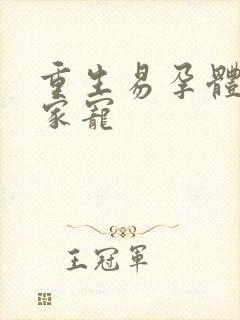 重生易孕體
家寵
王冠軍